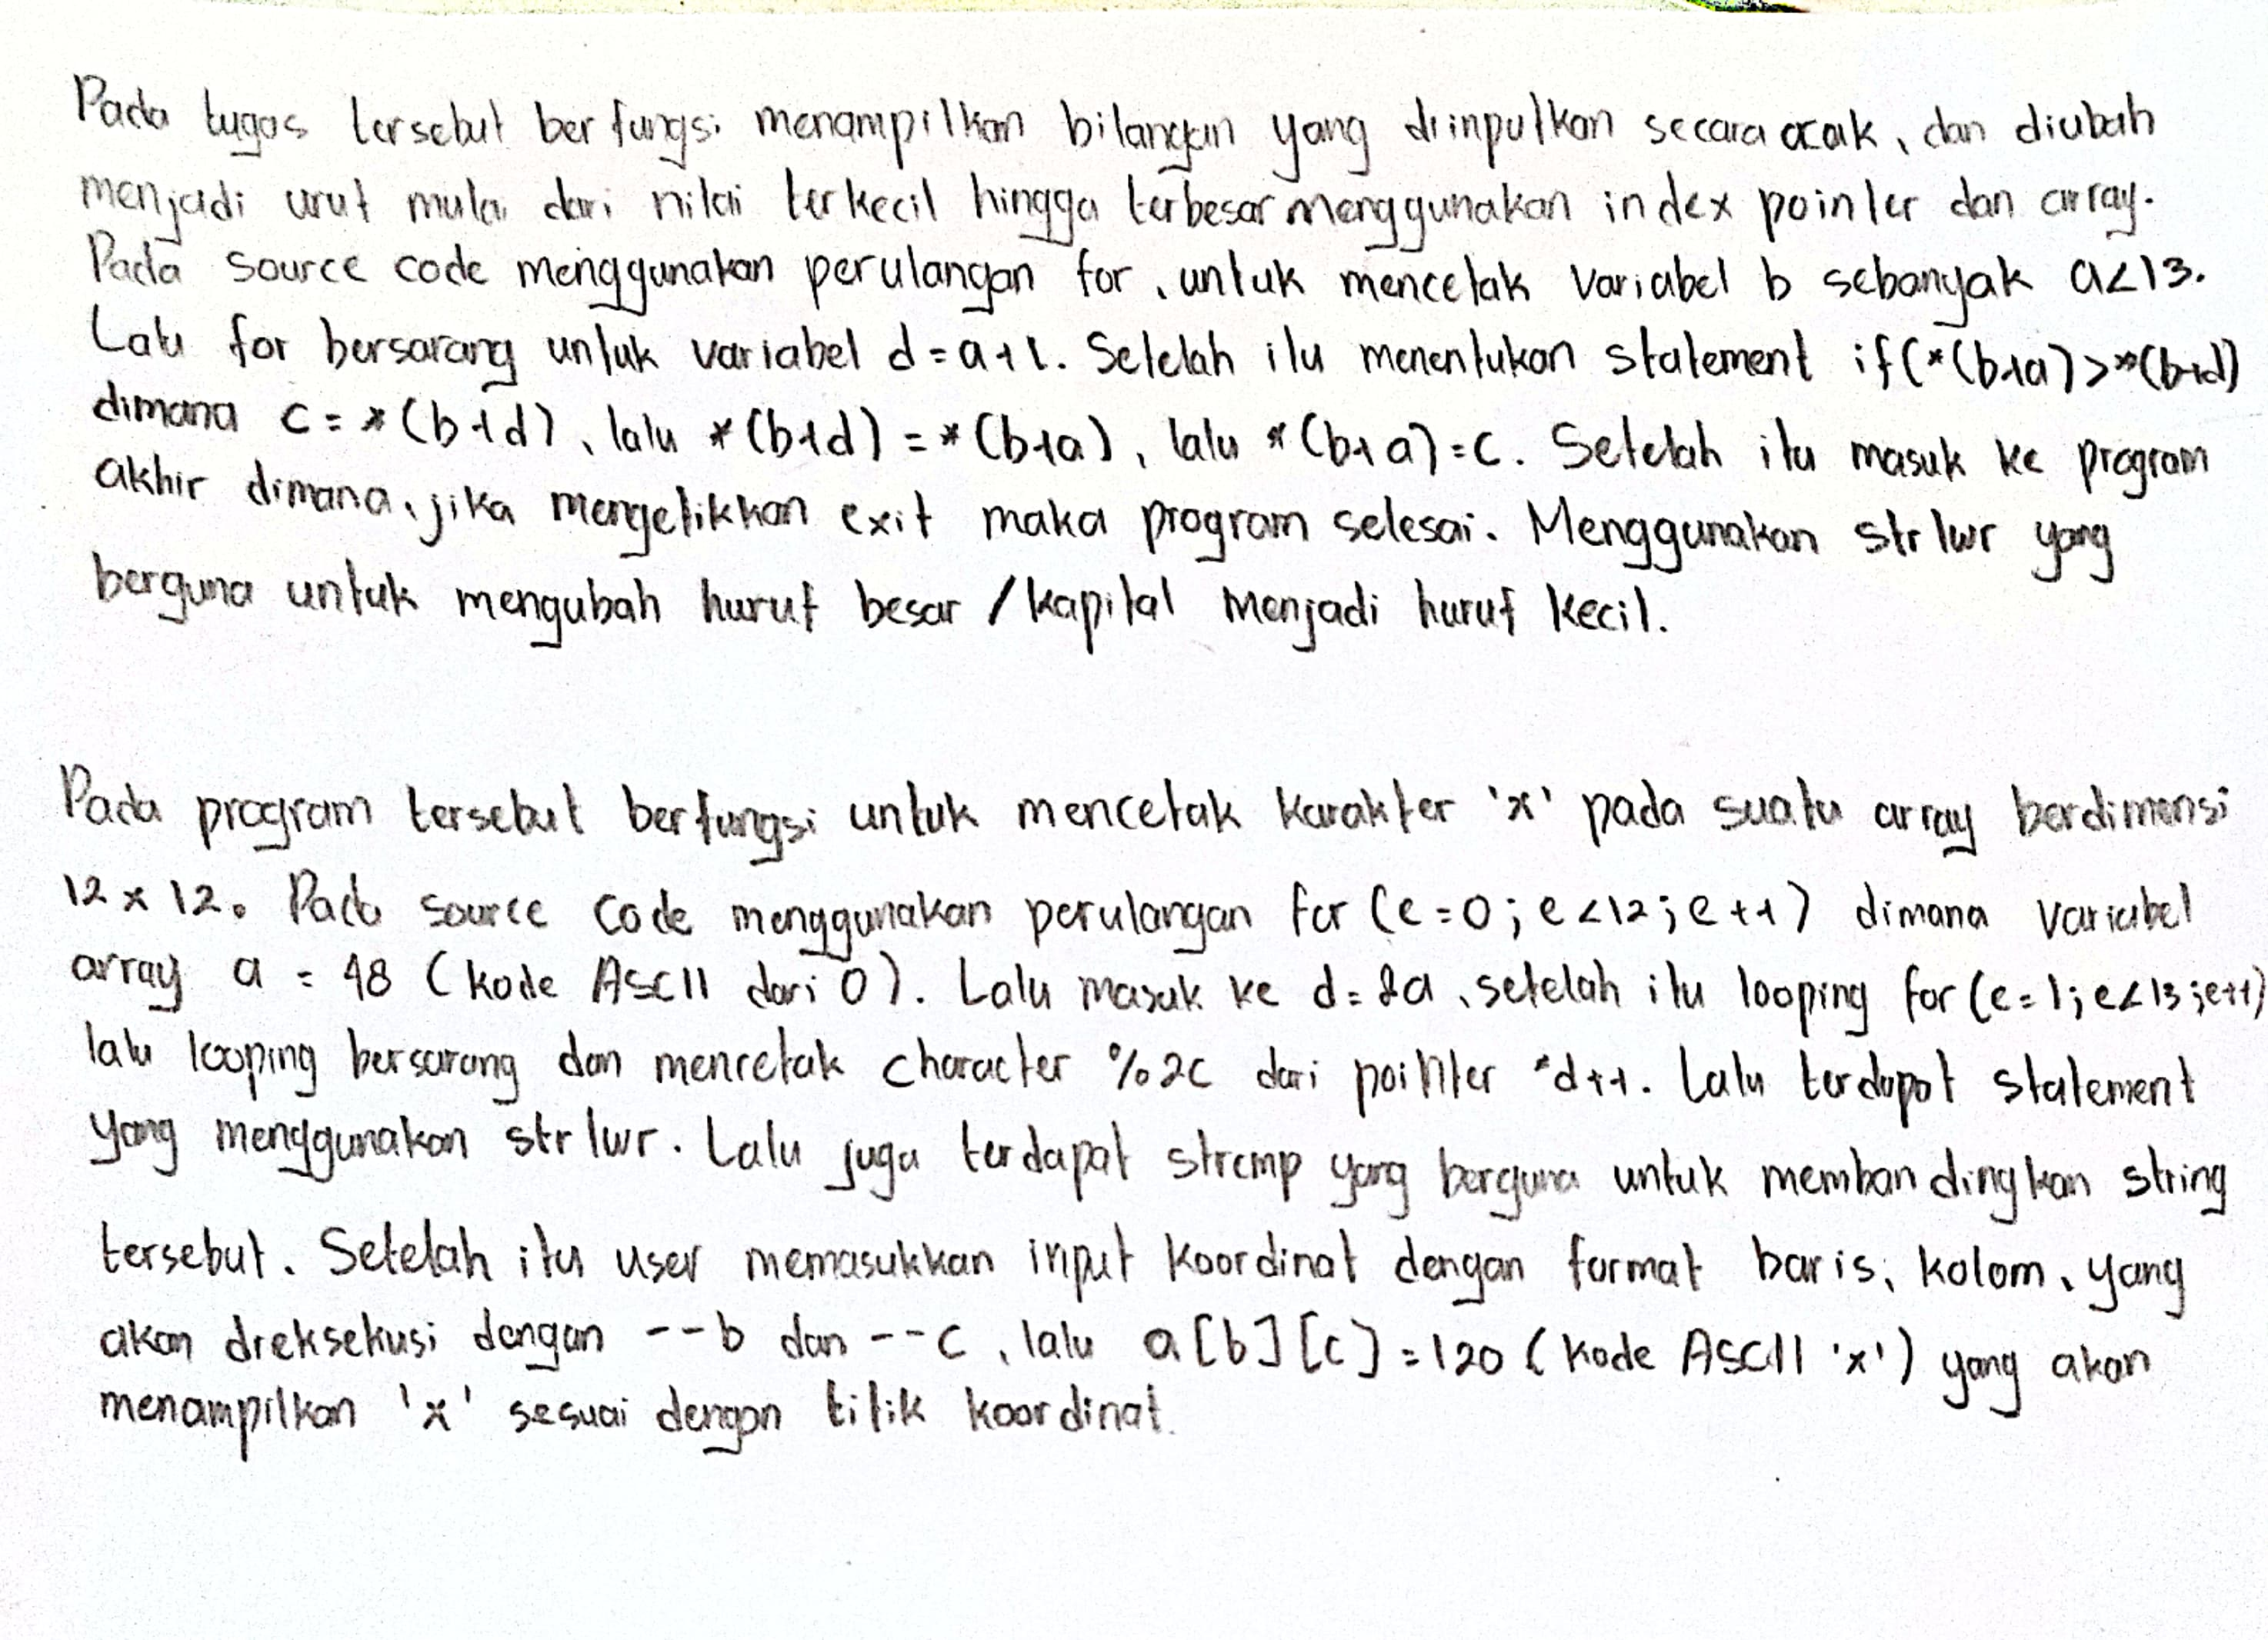 Pada tugas tersebut berfungsi menampilkan bilangan yang diinputkan secara acak, dan diubah
menjadi urut mulai dari nilai terkecil hingga terbesar menggunakan index pointer dan array.
Pada source code menggunakan perulangan for, untuk mencetak variabel b sebanyak a<13.
Lalu for bersarang untuk variabel d=a+1. Setelah itu menentukan statement if(*(b+a)>*(b+d)
dimana c=*(b+d), lalu *(b+d)=*(b+a), lalu *(b+a)=c. Setelah itu masuk ke program
akhir dimana, jika mengetikkan exit maka program selesai. Menggunakan strlwr yang
berguna untuk mengubah huruf besar / kapital menjadi huruf kecil.
Pada program tersebut berfungsi untuk mencetak karakter 'x' pada suatu array berdimensi
12 x 12. Pada source code menggunakan perulangan for (e=0; e<12; e++) dimana variabel
array a = 48 (kode ASCII dari 0). Lalu masuk ke d=&a, setelah itu looping for (e=1; e<13; e++)
lalu looping bersarang dan mencetak character %2c dari pointer *d++. Lalu terdapat statement
yang menggunakan strlwr. Lalu juga terdapat strcmp yang berguna untuk membandingkan string
tersebut. Setelah itu user memasukkan input koordinat dengan format baris, kolom, yang
akan dieksekusi dengan --b dan --c, lalu a[b][c]=120 (kode ASCII 'x') yang akan
menampilkan 'x' sesuai dengan titik koordinat.